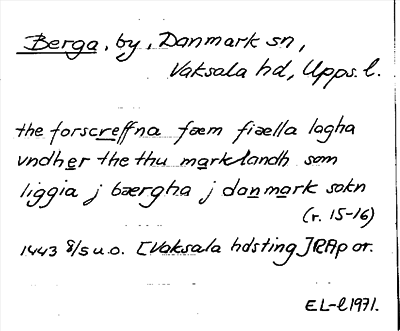 Berga, by, Danmark sn,
Vaksala hd, Upps. l.
the forscreffna fæm fiælla lagha
vndher the thu marklandh søm
liggia j bærgha j danmark sokn
(r. 15-16)
1443 8/5 u.o. [Vaksala hdsting] RAp or.
EL-l 1971.